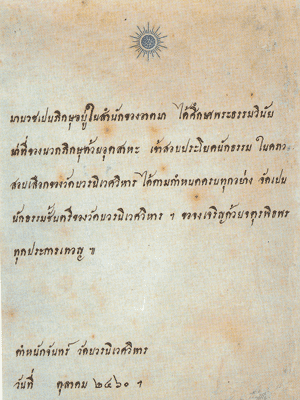 นายวชเปนภิกษุอยู่ในสำนักของอาตมา ได้ศึกษาพระธรรมวินัย
น่าที่ของนวกภิกษุด้วยอุตสาหะ เข้าสอบประโยคนักธรรม ในคราว
สอบเสือกของวัดบวรนิเวศวิหาร ได้ตามกำหนดครบทุกอย่าง จัดเปน
นักธรรมชั้นตรีของวัดบวรนิเวศวิหาร ฯ ขอจงเจริญด้วยจตุรพิธพร
ทุกประการเทอญ ๚
ตำหนักจันทร์ วัดบวรนิเวศวิหาร
วันที่ ตุลาคม ๒๔๖๐ ฯ